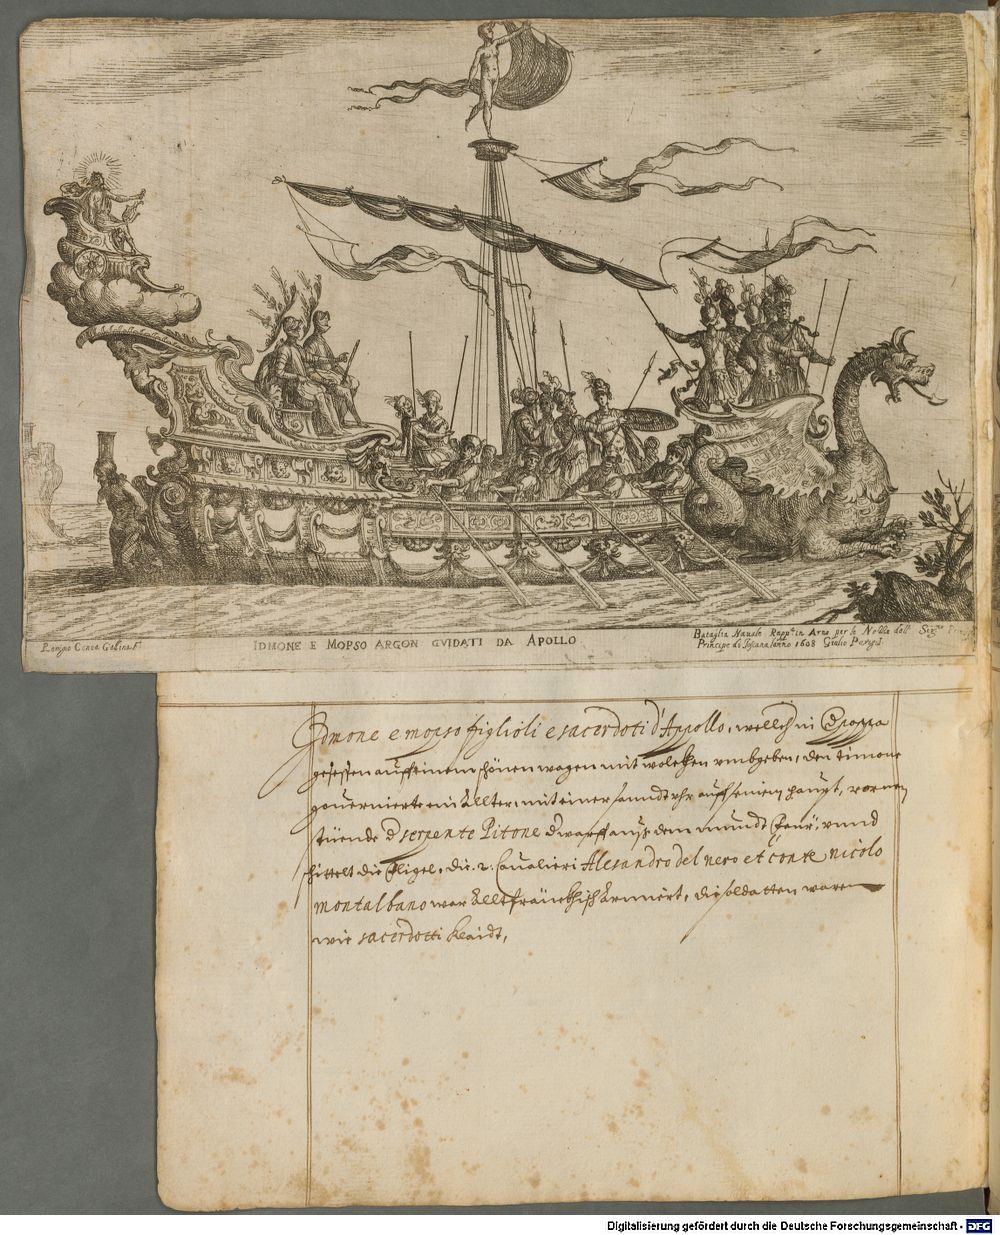 Remigio Canta Galina F.
IDMONE E MOPSO ARGON GVIDATI DA APOLLO
Bataglia Nauale Rapp.ta in Arno per le Nozze dell Ser.mo
Principe di Toscana lanno 1608 Giulio Parigi I.
Idmone e mopso figlioli e sacerdoti d'Appollo, wellch in poppa
gesessen auff einem schönen wagen mit wolckhen vmbgeben, den timone
gouernierte ein Allter, mit einer sanndt vhr auff seinem haupt, vornen
stüende d serpente Pitone d warff auß dem mundt feur, vnnd
schittelt die fligel, die 2. Caualieri Alesandro del nero et conte nicolo
montalbano war Allt fränckhisch Armiert, die soldatten waren
wie sacerdotti klaidt,
Digitalisierung gefördert durch die Deutsche Forschungsgemeinschaft - DFG